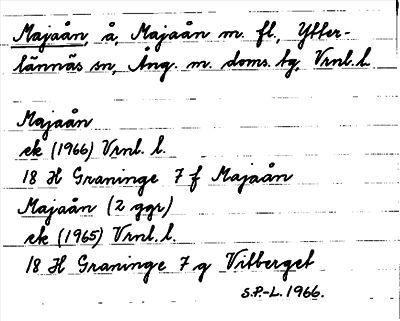 Majaån, å, Majaån m. fl., Ytter-
lännäs sn, Ång. m. doms. tg, Vrnl. l.
Majaån
ek (1966) Vrnl. l.
18 H Graninge 7 f Majaån
Majaån (2 ggr)
ek (1965) Vrnl. l.
18 H Graninge 7 g Vitberget
S.P.-L. 1966.